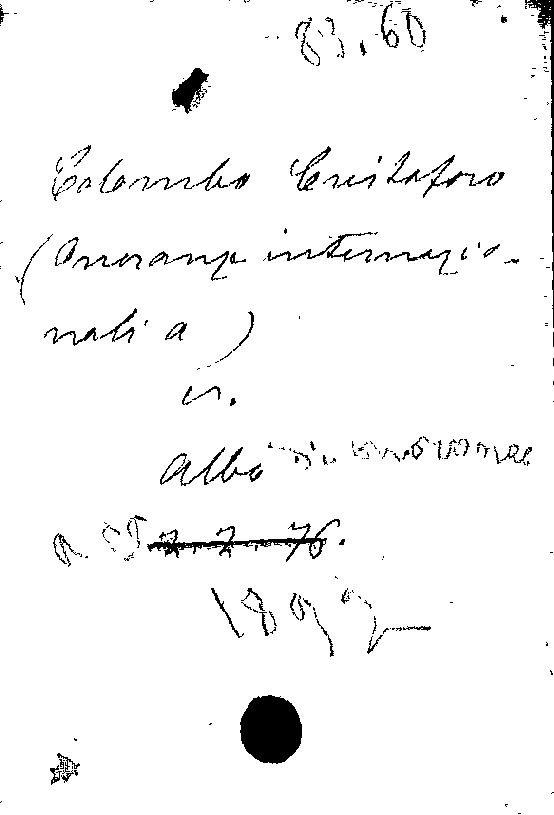 83.60
Colombo Cristoforo
(Onoranze internazio-
nali a)
v.
Albo di onoranze
a
1892